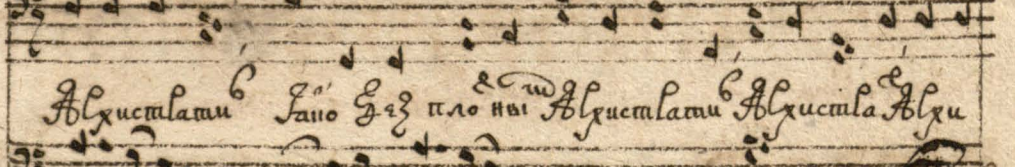 Архистратиг без пло ны Архистратиг Архистра Архи